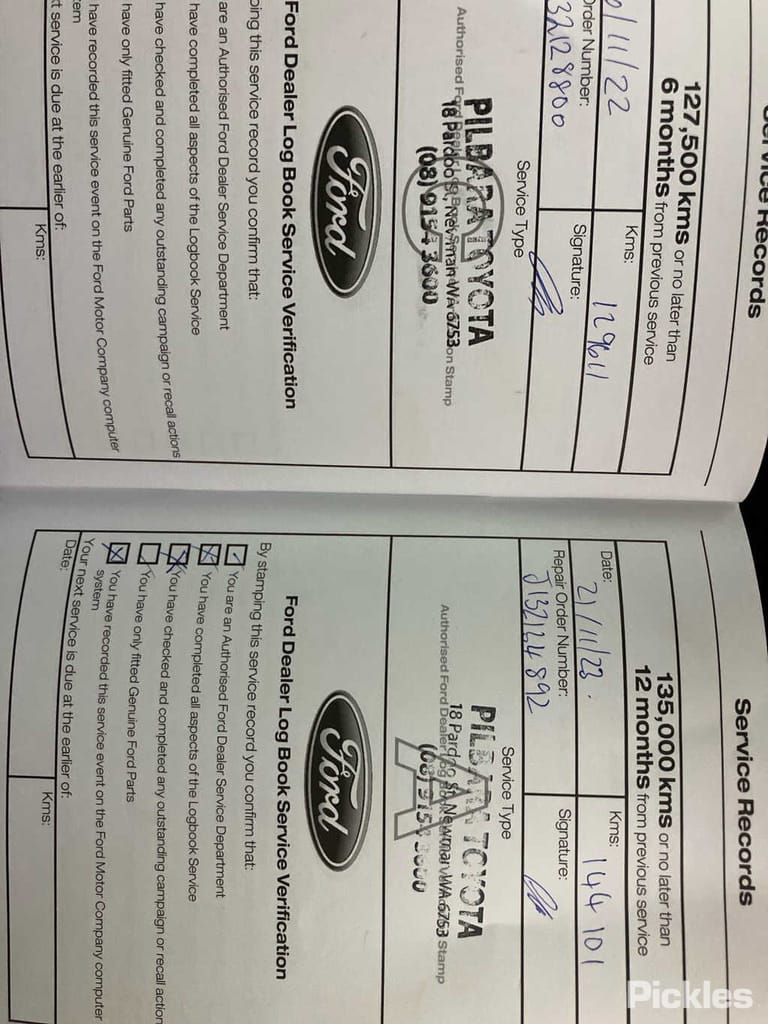 Service Records
127,500 kms or no later than
6 months from previous service
/11/22
Kms: 129611
Order Number:
32128800
Signature:
Service Type
PILBARA TOYOTA
18 Pardoo St, Newman WA 6753
(08) 9154 3600
Authorised Ford Dealer Log Book Service Verification Stamp
Ford
Ford Dealer Log Book Service Verification
ping this service record you confirm that:
are an Authorised Ford Dealer Service Department
have completed all aspects of the Logbook Service
have checked and completed any outstanding campaign or recall actions
have only fitted Genuine Ford Parts
have recorded this service event on the Ford Motor Company computer
tem
xt service is due at the earlier of:
Kms:
Service Records
135,000 kms or no later than
12 months from previous service
Date: 21/11/23.
Kms: 144 101
Repair Order Number:
J132134892
Signature:
Service Type
PILBARA TOYOTA
18 Pardoo St, Newman WA 6753
(08) 9154 3600
Authorised Ford Dealer Log Book Service Verification Stamp
A
Ford
Ford Dealer Log Book Service Verification
By stamping this service record you confirm that:
You are an Authorised Ford Dealer Service Department
You have completed all aspects of the Logbook Service
You have checked and completed any outstanding campaign or recall action
You have only fitted Genuine Ford Parts
You have recorded this service event on the Ford Motor Company computer
system
Your next service is due at the earlier of:
Date:
Kms:
Pickles